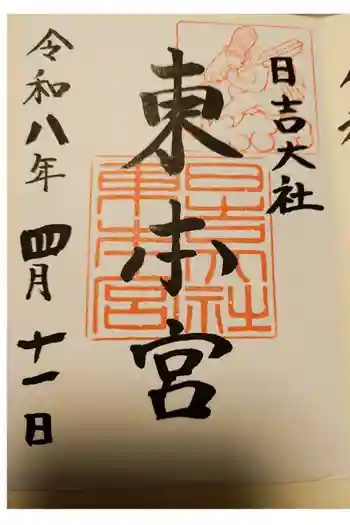 日吉大社
東本宮
令和八年 四月 十一日
日吉大社
東本宮